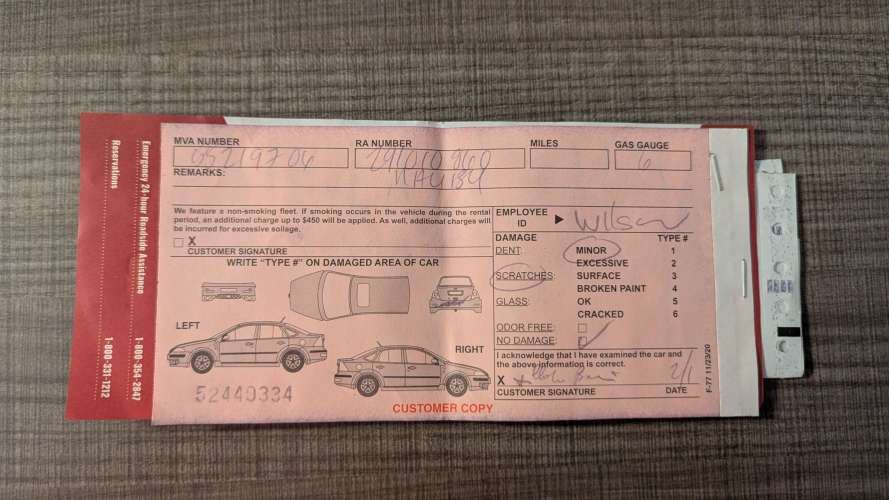 Emergency 24-hour Roadside Assistance 1-800-354-2847
Reservations 1-800-331-1212
MVA NUMBER
RA NUMBER
MILES
GAS GAUGE
6
REMARKS:
We feature a non-smoking fleet. If smoking occurs in the vehicle during the rental
period, an additional charge up to $450 will be applied. As well, additional charges will
be incurred for excessive soilage.
X
CUSTOMER SIGNATURE
WRITE "TYPE #" ON DAMAGED AREA OF CAR
LEFT
RIGHT
52440334
CUSTOMER COPY
EMPLOYEE ID Wilson
DAMAGE TYPE #
DENT: MINOR 1
EXCESSIVE 2
SCRATCHES: SURFACE 3
BROKEN PAINT 4
GLASS: OK 5
CRACKED 6
ODOR FREE:
NO DAMAGE:
I acknowledge that I have examined the car and
the above information is correct.
X 2/1
CUSTOMER SIGNATURE DATE
F-77 11/23/20